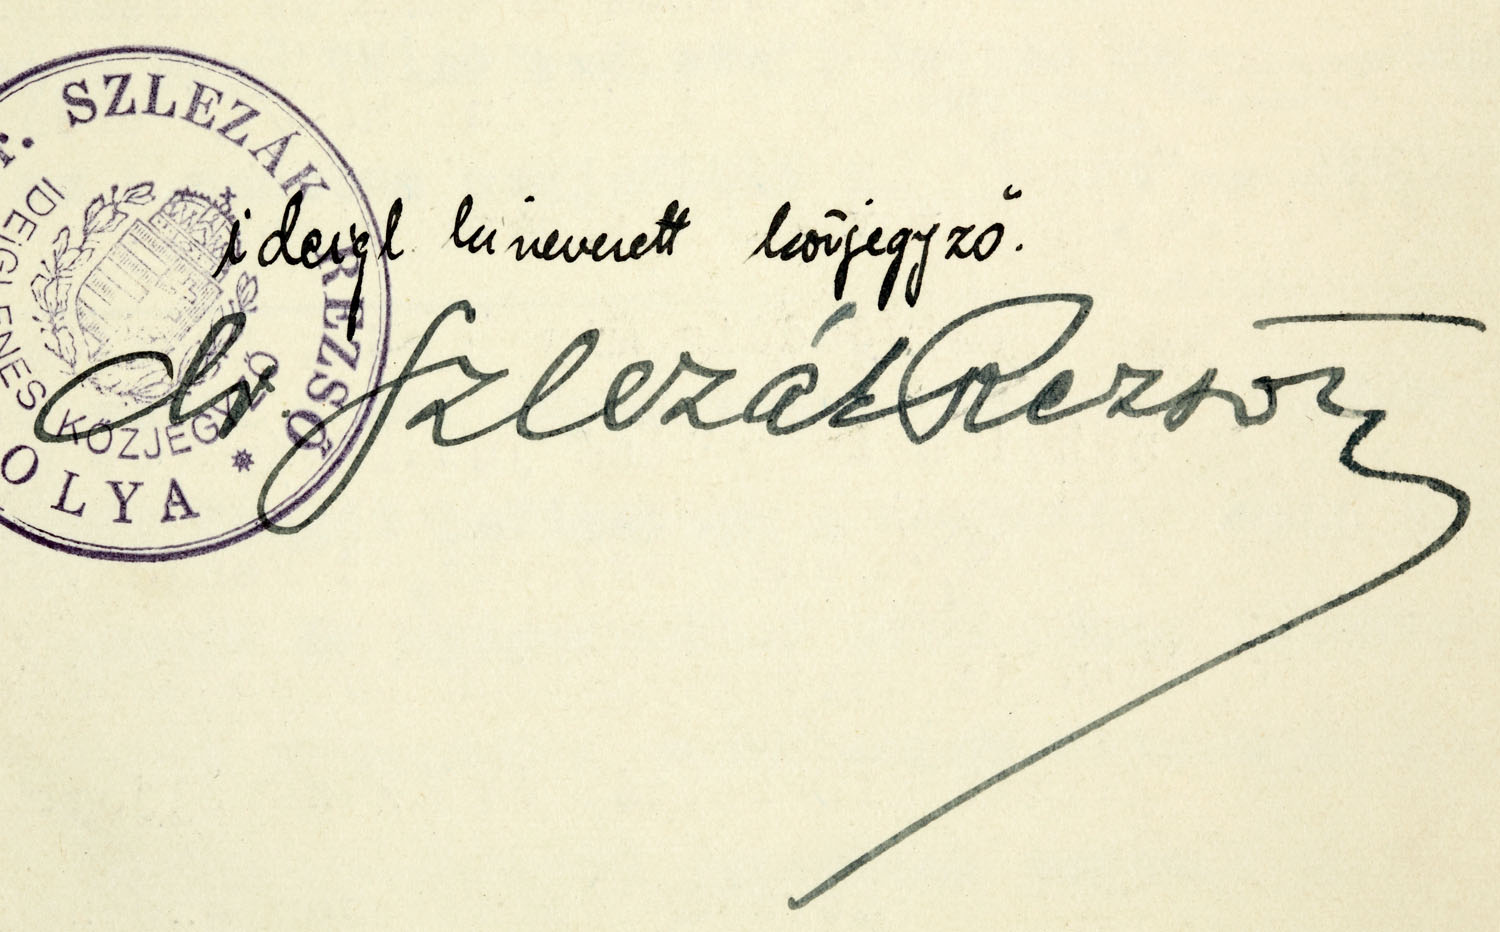 SZLEZÁK REZSŐ
IDEIGLENES KÖZJEGYZŐ
OLYA *
ideigl kinevezett közjegyző.
dr. Szlezák Rezső